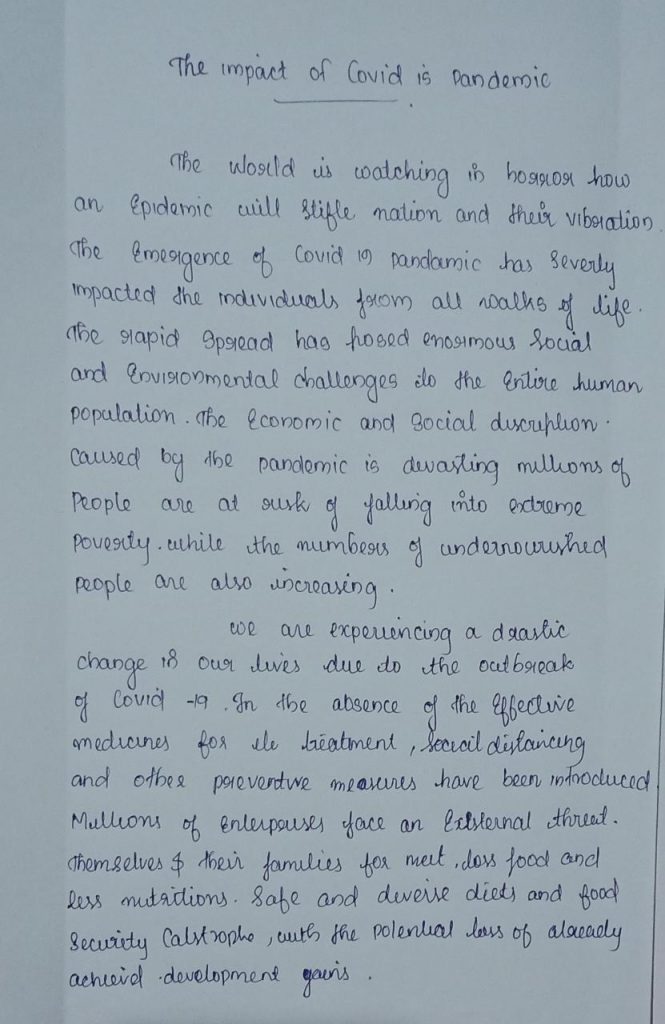 The impact of Covid is Pandemic
The World is watching in horror how
an Epidemic will Stifle nation and their vibration.
The Emergence of Covid 19 pandamic has Severly
impacted the individuals from all walks of life.
The rapid Spread has posed enormous Social
and Environmental challenges to the Entire human
population. The Economic and Social discruption.
Caused by the pandemic is devasting millions of
People are at risk of falling into extreme
poverty. while the numbers of undernourished
people are also increasing.
we are experiencing a drastic
change in our lives due to the outbreak
of Covid -19. In the absence of the Effective
medicines for its treatment, Social distancing
and other preventive measures have been introduced.
Millions of Enterprises face an External threat.
Themselves & their families for meet, loss food and
less nutritions. Safe and diverse diets and food
Security Calstrophe, with the potential loss of already
achieved development gains.